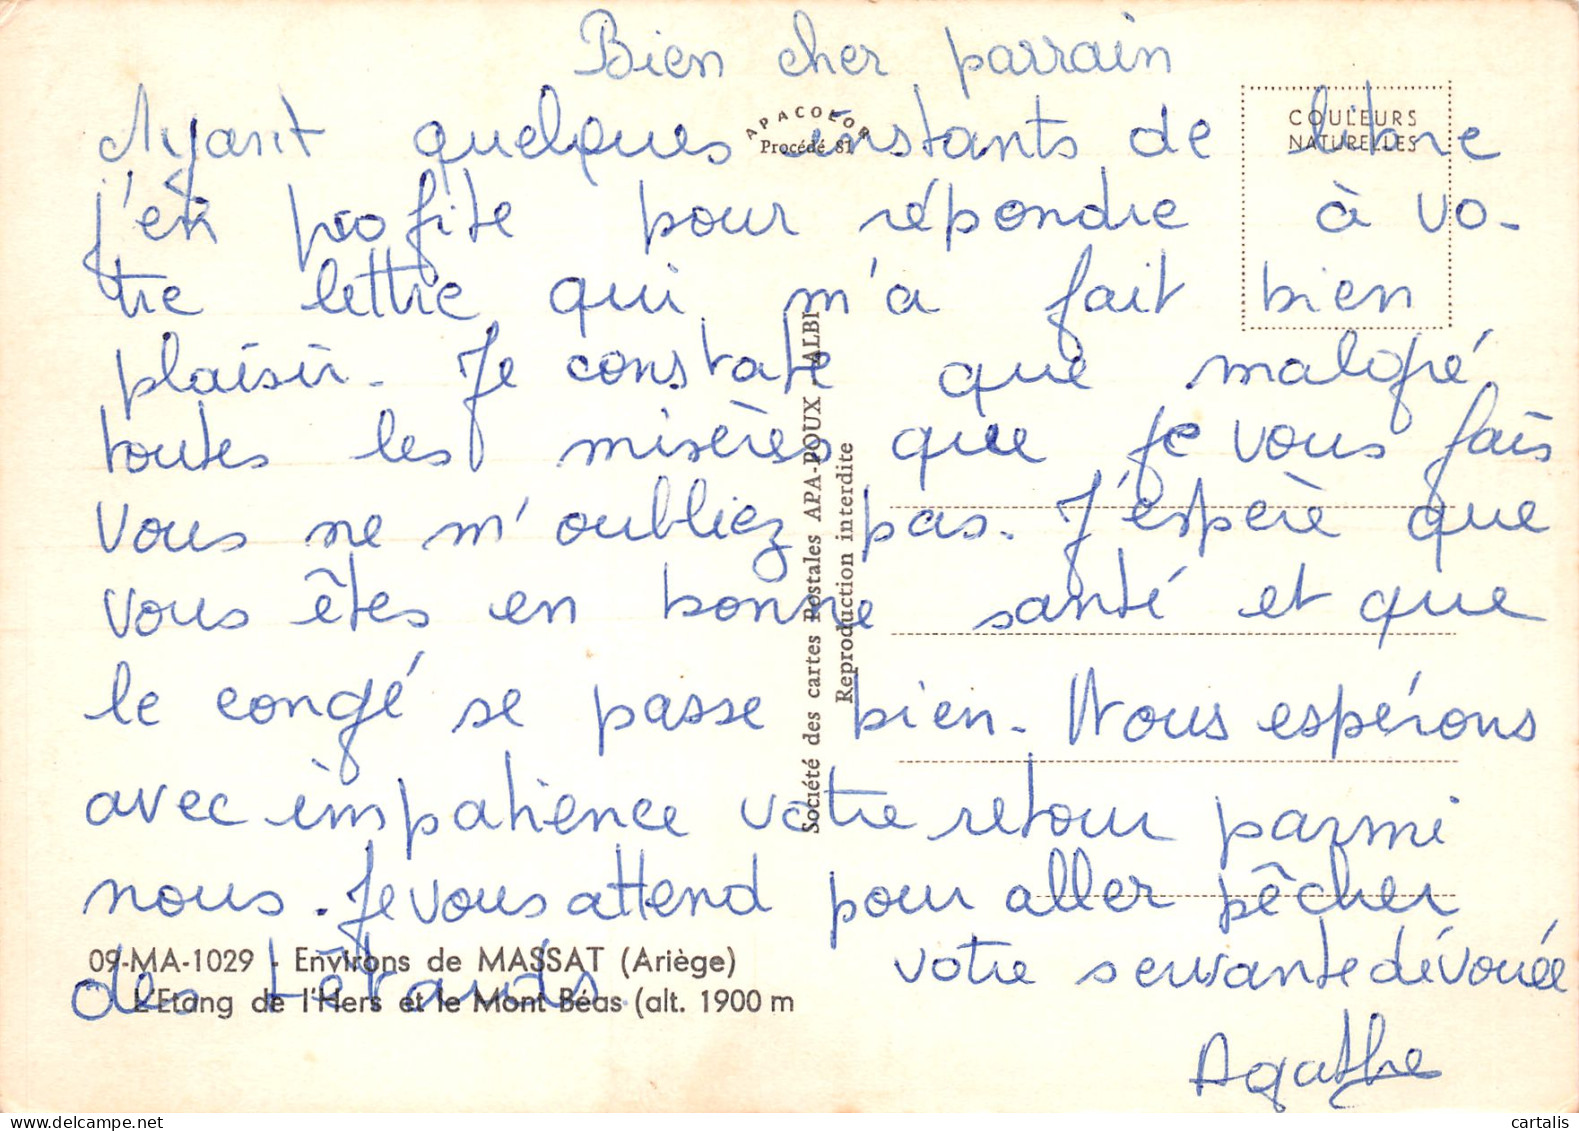 Bien cher parrain
Ayant quelques instants de libre
j'en profite pour répondre à vo-
tre lettre qui m'a fait bien
plaisir. Je constate que malgré
toutes les misères que je vous fais
vous ne m'oubliez pas. J'espère que
vous êtes en bonne santé et que
le congé se passe bien. Nous espérons
avec impatience votre retour parmi
nous. Je vous attend pour aller pêcher
des têtards.
votre servante dévouée
Agathe
APACOLOR
Procédé 81
COULEURS
NATURELLES
Société des cartes Postales APA-POUX - ALBI
Reproduction interdite
09-MA-1029 - Environs de MASSAT (Ariège)
L'Etang de l'Hers et le Mont Béas (alt. 1900 m
cartalis